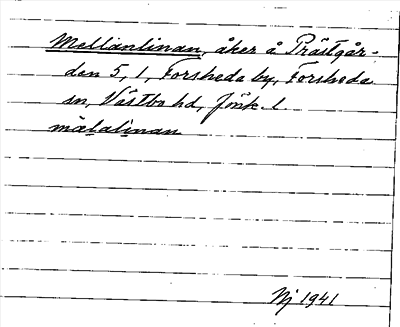 Mellanlinan, åker å Prästgår-
den 5, 1, Forsheda by, Forsheda
sn, Västbo hd, Jönk. l.
mälalinan
Nj 1941